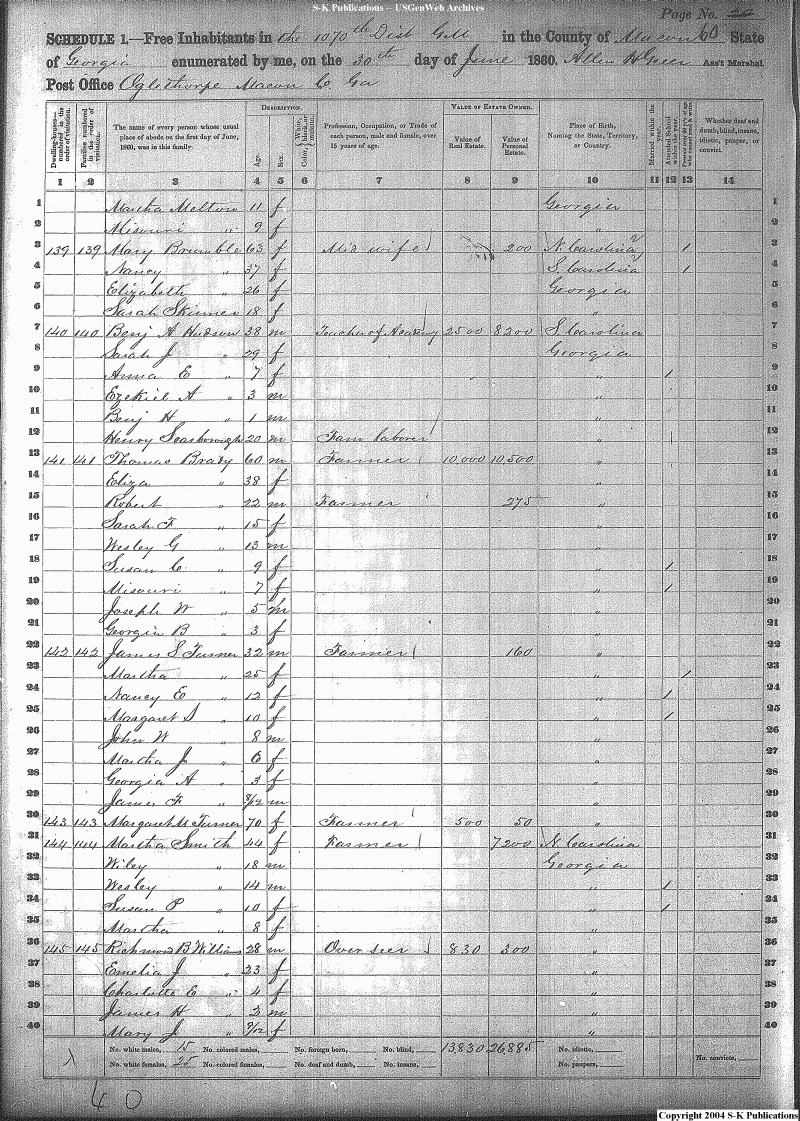 S-K Publications -- USGenWeb Archives
Page No.
SCHEDULE 1.—Free Inhabitants in the 1070th Dist G.M. in the County of Macon State
of Georgia enumerated by me, on the 30th day of June 1860. Allen H Greer Ass't Marshal
Post Office Oglethorpe Macon Co Ga
Dwelling-houses—numbered in the order of visitation.
Families numbered in the order of visitation.
The name of every person whose usual place of abode on the first day of June, 1860, was in this family.
DESCRIPTION.
Age.
Sex.
Color, White, black, or mulatto.
Profession, Occupation, or Trade of each person, male and female, over 15 years of age.
VALUE OF ESTATE OWNED.
Value of Real Estate.
Value of Personal Estate.
Place of Birth, Naming the State, Territory, or Country.
Married within the year.
Attended School within the year.
Persons over 20 y'rs of age who cannot read & write.
Whether deaf and dumb, blind, insane, idiotic, pauper, or convict.
1 2 3 4 5 6 7 8 9 10 11 12 13 14
1 Martha Melton 11 f Georgia 1
2 Misouri " 9 f " 2
3 139 139 Mary Brumble 63 f Mid wife 200 N. Carolina 1 3
4 Nancy " 37 f S. Carolina 1 4
5 Elizabeth " 26 f Georgia 5
6 Sarah Skinner 18 f " 6
7 140 140 Benj A Hudson 38 m Teacher of Academy 2500 8200 S Carolina 7
8 Sarah J " 29 f Georgia 8
9 Anna E " 7 f " 1 9
10 Ezekiel A " 3 m " 10
11 Benj H " 1 m " 11
12 Henry Scarborough 20 m Farm laborer " 12
13 141 141 Thomas Brady 60 m Farmer 10,000 10,500 " 13
14 Eliza " 38 f " 14
15 Robert " 22 m Farmer 275 " 15
16 Sarah F " 15 f " 16
17 Wesley G " 13 m " 17
18 Susan C " 9 f " 1 18
19 Misouri " 7 f " 1 19
20 Joseph W " 5 m " 20
21 Georgia B " 3 f " 21
22 142 142 James S Turner 32 m Farmer 160 " 22
23 Martha " 25 f " 1 23
24 Nancy E " 12 f " 1 24
25 Margaret S " 10 f " 1 25
26 John W " 8 m " 26
27 Martha J " 6 f " 27
28 Georgia A " 3 f " 28
29 James F " /12 m " 29
30 143 143 Margaret M Turner 70 f Farmer 500 50 " 30
31 144 144 Martha Smith 44 f Farmer 7200 N Carolina 31
32 Wiley " 18 m Georgia 32
33 Wesley " 14 m " 1 33
34 Susan P " 10 f " 1 34
35 Martha " 8 f " 35
36 145 145 Richmond B Williams 28 m Over seer 830 300 " 36
37 Emelia J " 23 f " 37
38 Charlotte E " 4 f " 38
39 James H " 2 m " 39
40 Mary J " 9/12 f " 40
No. white males, 15 No. colored males, No. foreign born, No. blind, 13830 26885 No. idiotic,
No. white females, 25 No. colored females, No. deaf and dumb, No. insane, No. paupers, No. convicts,
40
Copyright 2004 S-K Publications